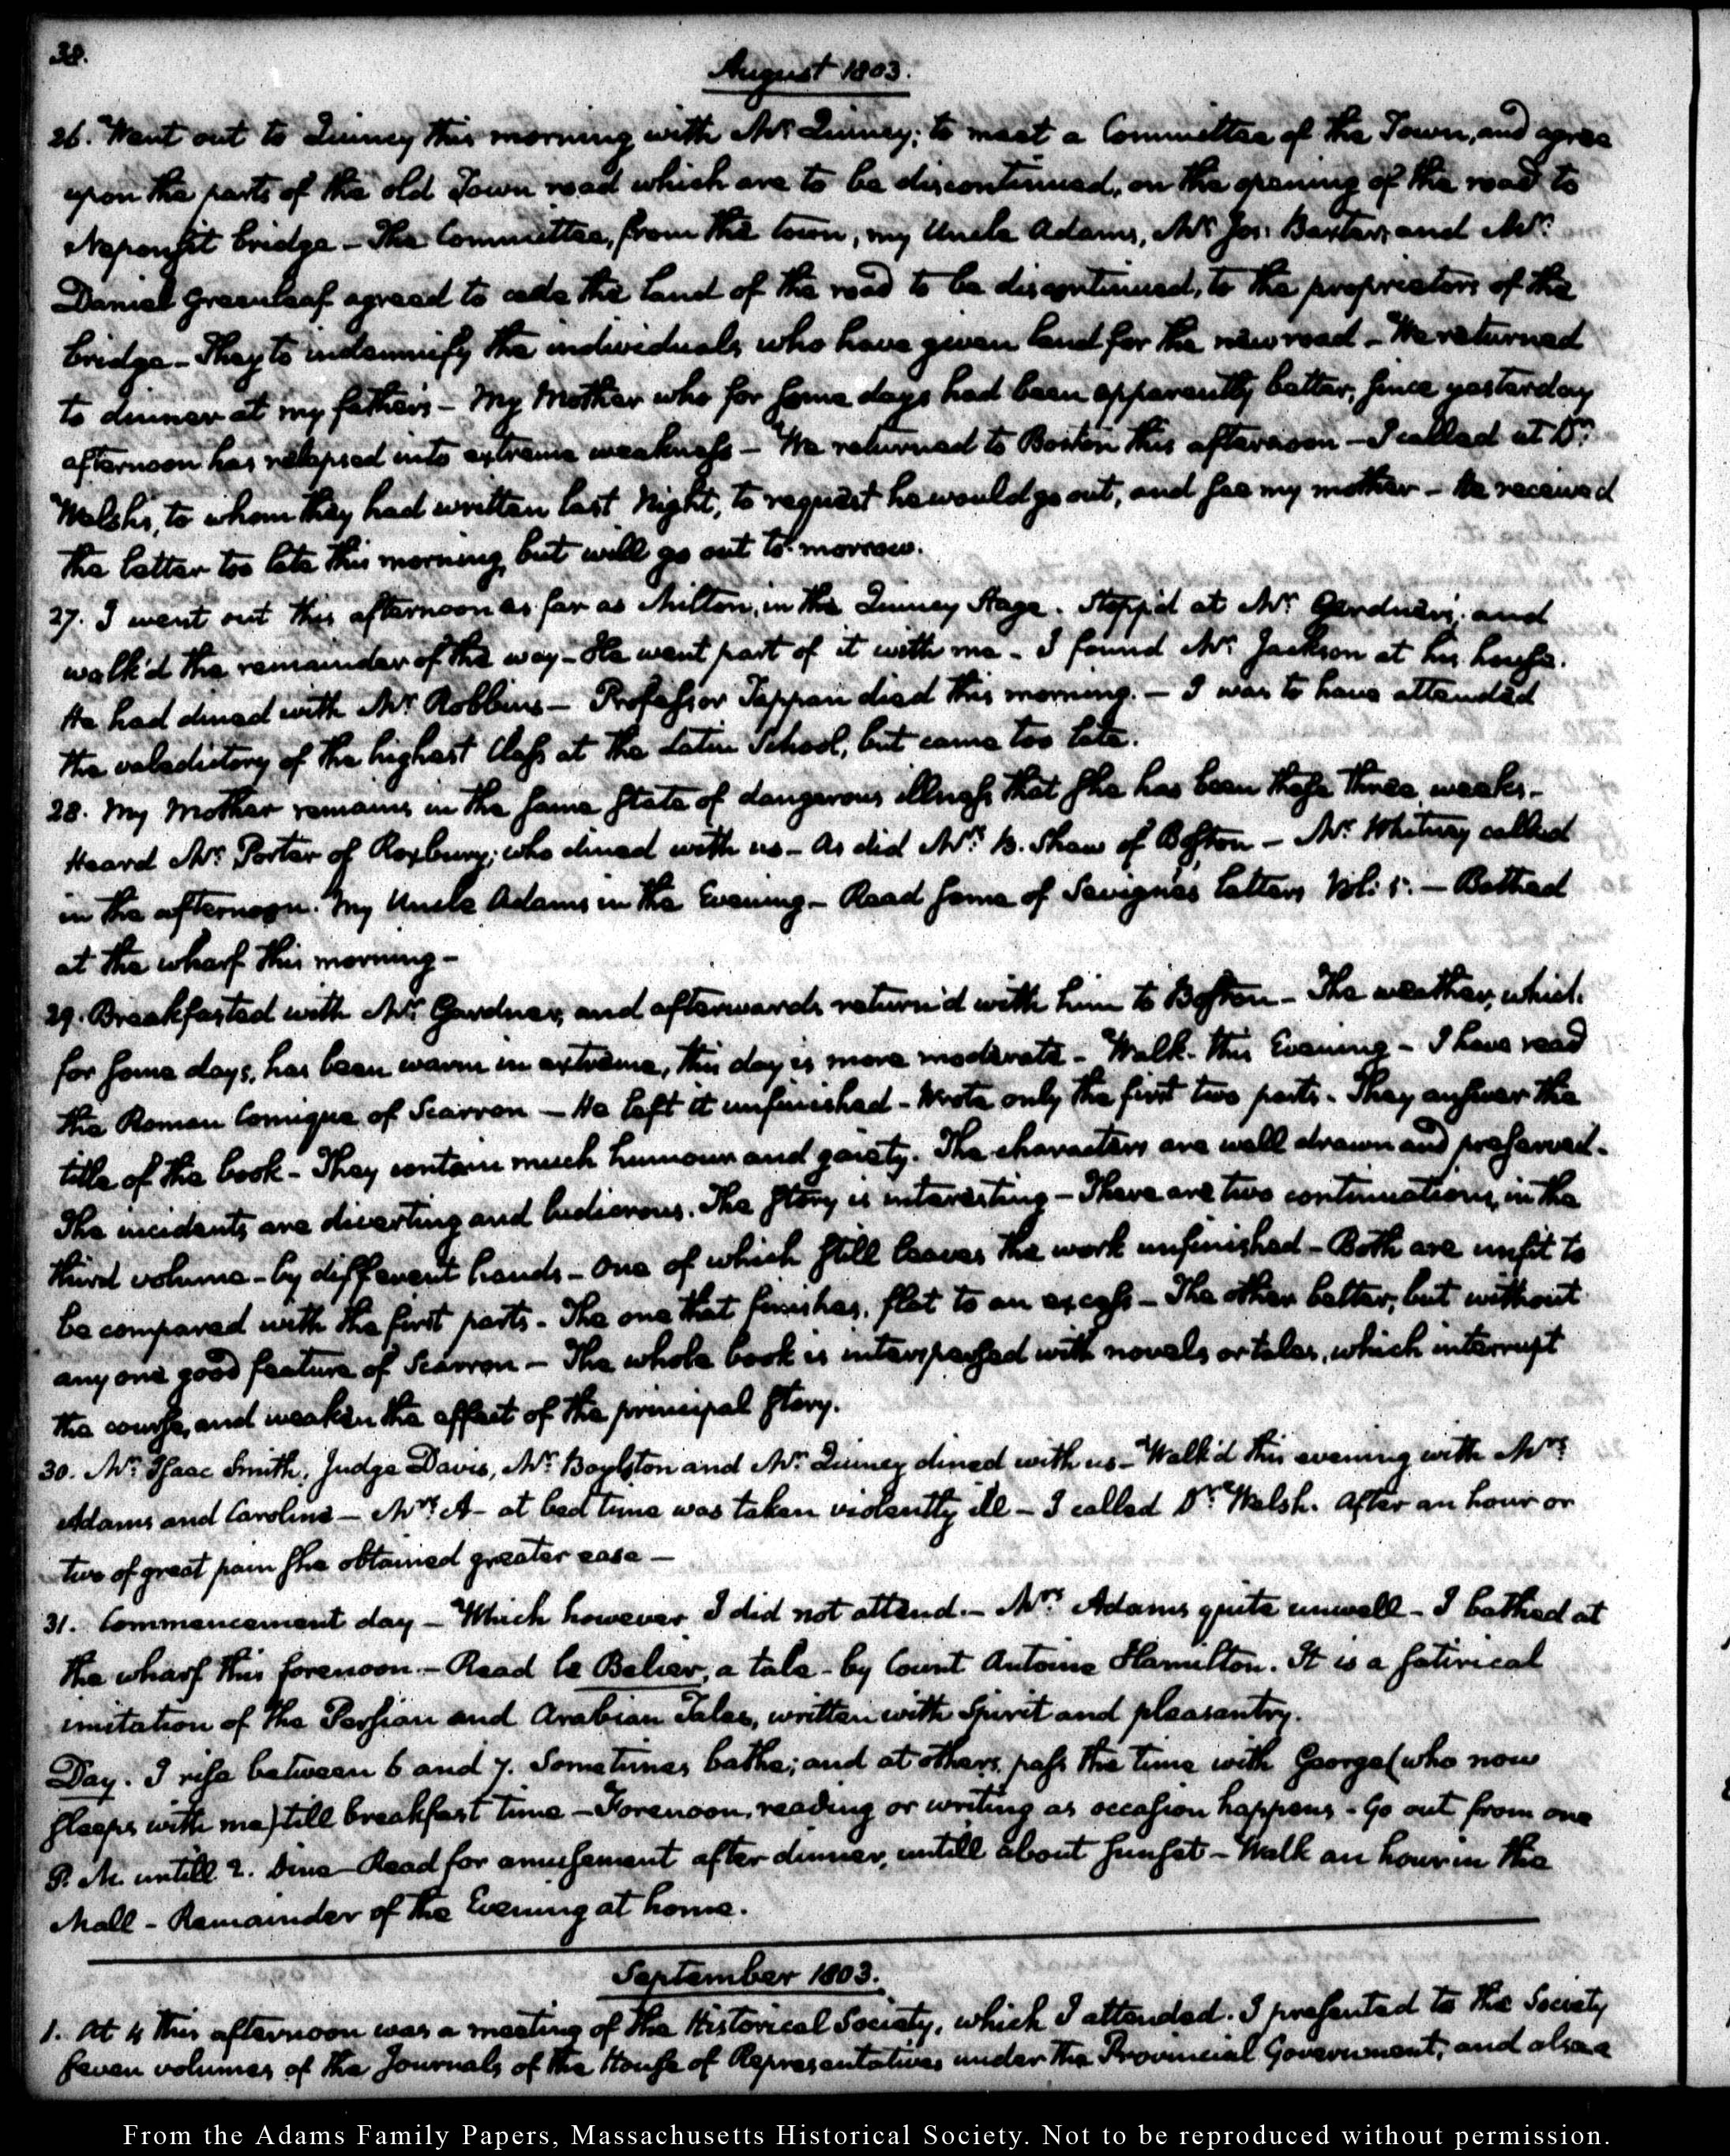 38.
August 1803.
26. Went out to Quincy this morning with Mr. Quincy; to meet a Committee of the Town, and agree
upon the parts of the old Town road which are to be discontinued, on the opening of the road to
Neponsit bridge — The Committee, from the town, my Uncle Adams, Mr. Jos: Baxter, and Mr.
Daniel Greenleaf agreed to cede the land of the road to be discontinued, to the proprietors of the
bridge — They to indemnify the individuals who have given land for the new road — We returned
to dinner at my father's — My Mother who for some days had been apparently better, since yesterday
afternoon has relapsed into extreme weakness — We returned to Boston this afternoon — I called at Dr.
Welsh's, to whom they had written last Night, to request he would go out, and see my mother — he received
the letter too late this morning, but will go out to-morrow.
27. I went out this afternoon as far as Milton, in the Quincy Stage. Stopp'd at Mr. Gardner's, and
walk'd the remainder of the way — He went part of it with me — I found Mr. Jackson at his house.
He had dined with Mr. Robbins — Professor Tappan died this morning. — I was to have attended
the valedictory of the highest Class at the Latin School, but came too late.
28. My Mother remains in the same state of dangerous illness that she has been these three weeks —
Heard Mr. Porter of Roxbury; who dined with us — As did Mr. B. Shaw of Boston — Mr. Whitney called
in the afternoon. My Uncle Adams in the Evening — Read some of Sevigné's letters Vol: 5. — Bathed
at the wharf this morning —
29. Breakfasted with Mr. Gardner, and afterwards return'd with him to Boston — The weather, which
for some days, has been warm in extreme, this day is more moderate — Walk this Evening — I have read
the Roman Comique of Scarron — He left it unfinished — Wrote only the first two parts. They answer the
title of the book — They contain much humour and gaiety. The characters are well drawn and preserved.
The incidents are diverting and ludicrous. The story is interesting — There are two continuations, in the
third volume — by different hands — One of which still leaves the work unfinished — Both are unfit to
be compared with the first parts — The one that finishes, flat to an excess — The other better, but without
any one good feature of Scarron — The whole book is interspersed with novels or tales, which interrupt
the course, and weaken the effect of the principal story.
30. Mr. Isaac Smith, Judge Davis, Mr. Boylston and Mr. Quincy dined with us — Walk'd this evening with Mrs.
Adams and Caroline — Mrs. A — at bed time was taken violently ill — I called Dr. Welsh. After an hour or
two of great pain she obtained greater ease —
31. Commencement day — Which however I did not attend. — Mrs. Adams quite unwell — I bathed at
the wharf this forenoon. — Read le Belier, a tale — by Count Antoine Hamilton. It is a satirical
imitation of the Persian and Arabian Tales, written with spirit and pleasantry.
Day. I rise between 6 and 7. Sometimes bathe; and at others, pass the time with George (who now
sleeps with me) till breakfast time — Forenoon, reading or writing as occasion happens — Go out from one
P. M. untill 2. Dine — Read for amusement after dinner, untill about sunset — Walk an hour in the
Mall — Remainder of the Evening at home.
September 1803.
1. At 4 this afternoon was a meeting of the Historical Society, which I attended. I presented to the Society
seven volumes of the Journals of the House of Representatives under the Provincial Government; and also a
From the Adams Family Papers, Massachusetts Historical Society. Not to be reproduced without permission.